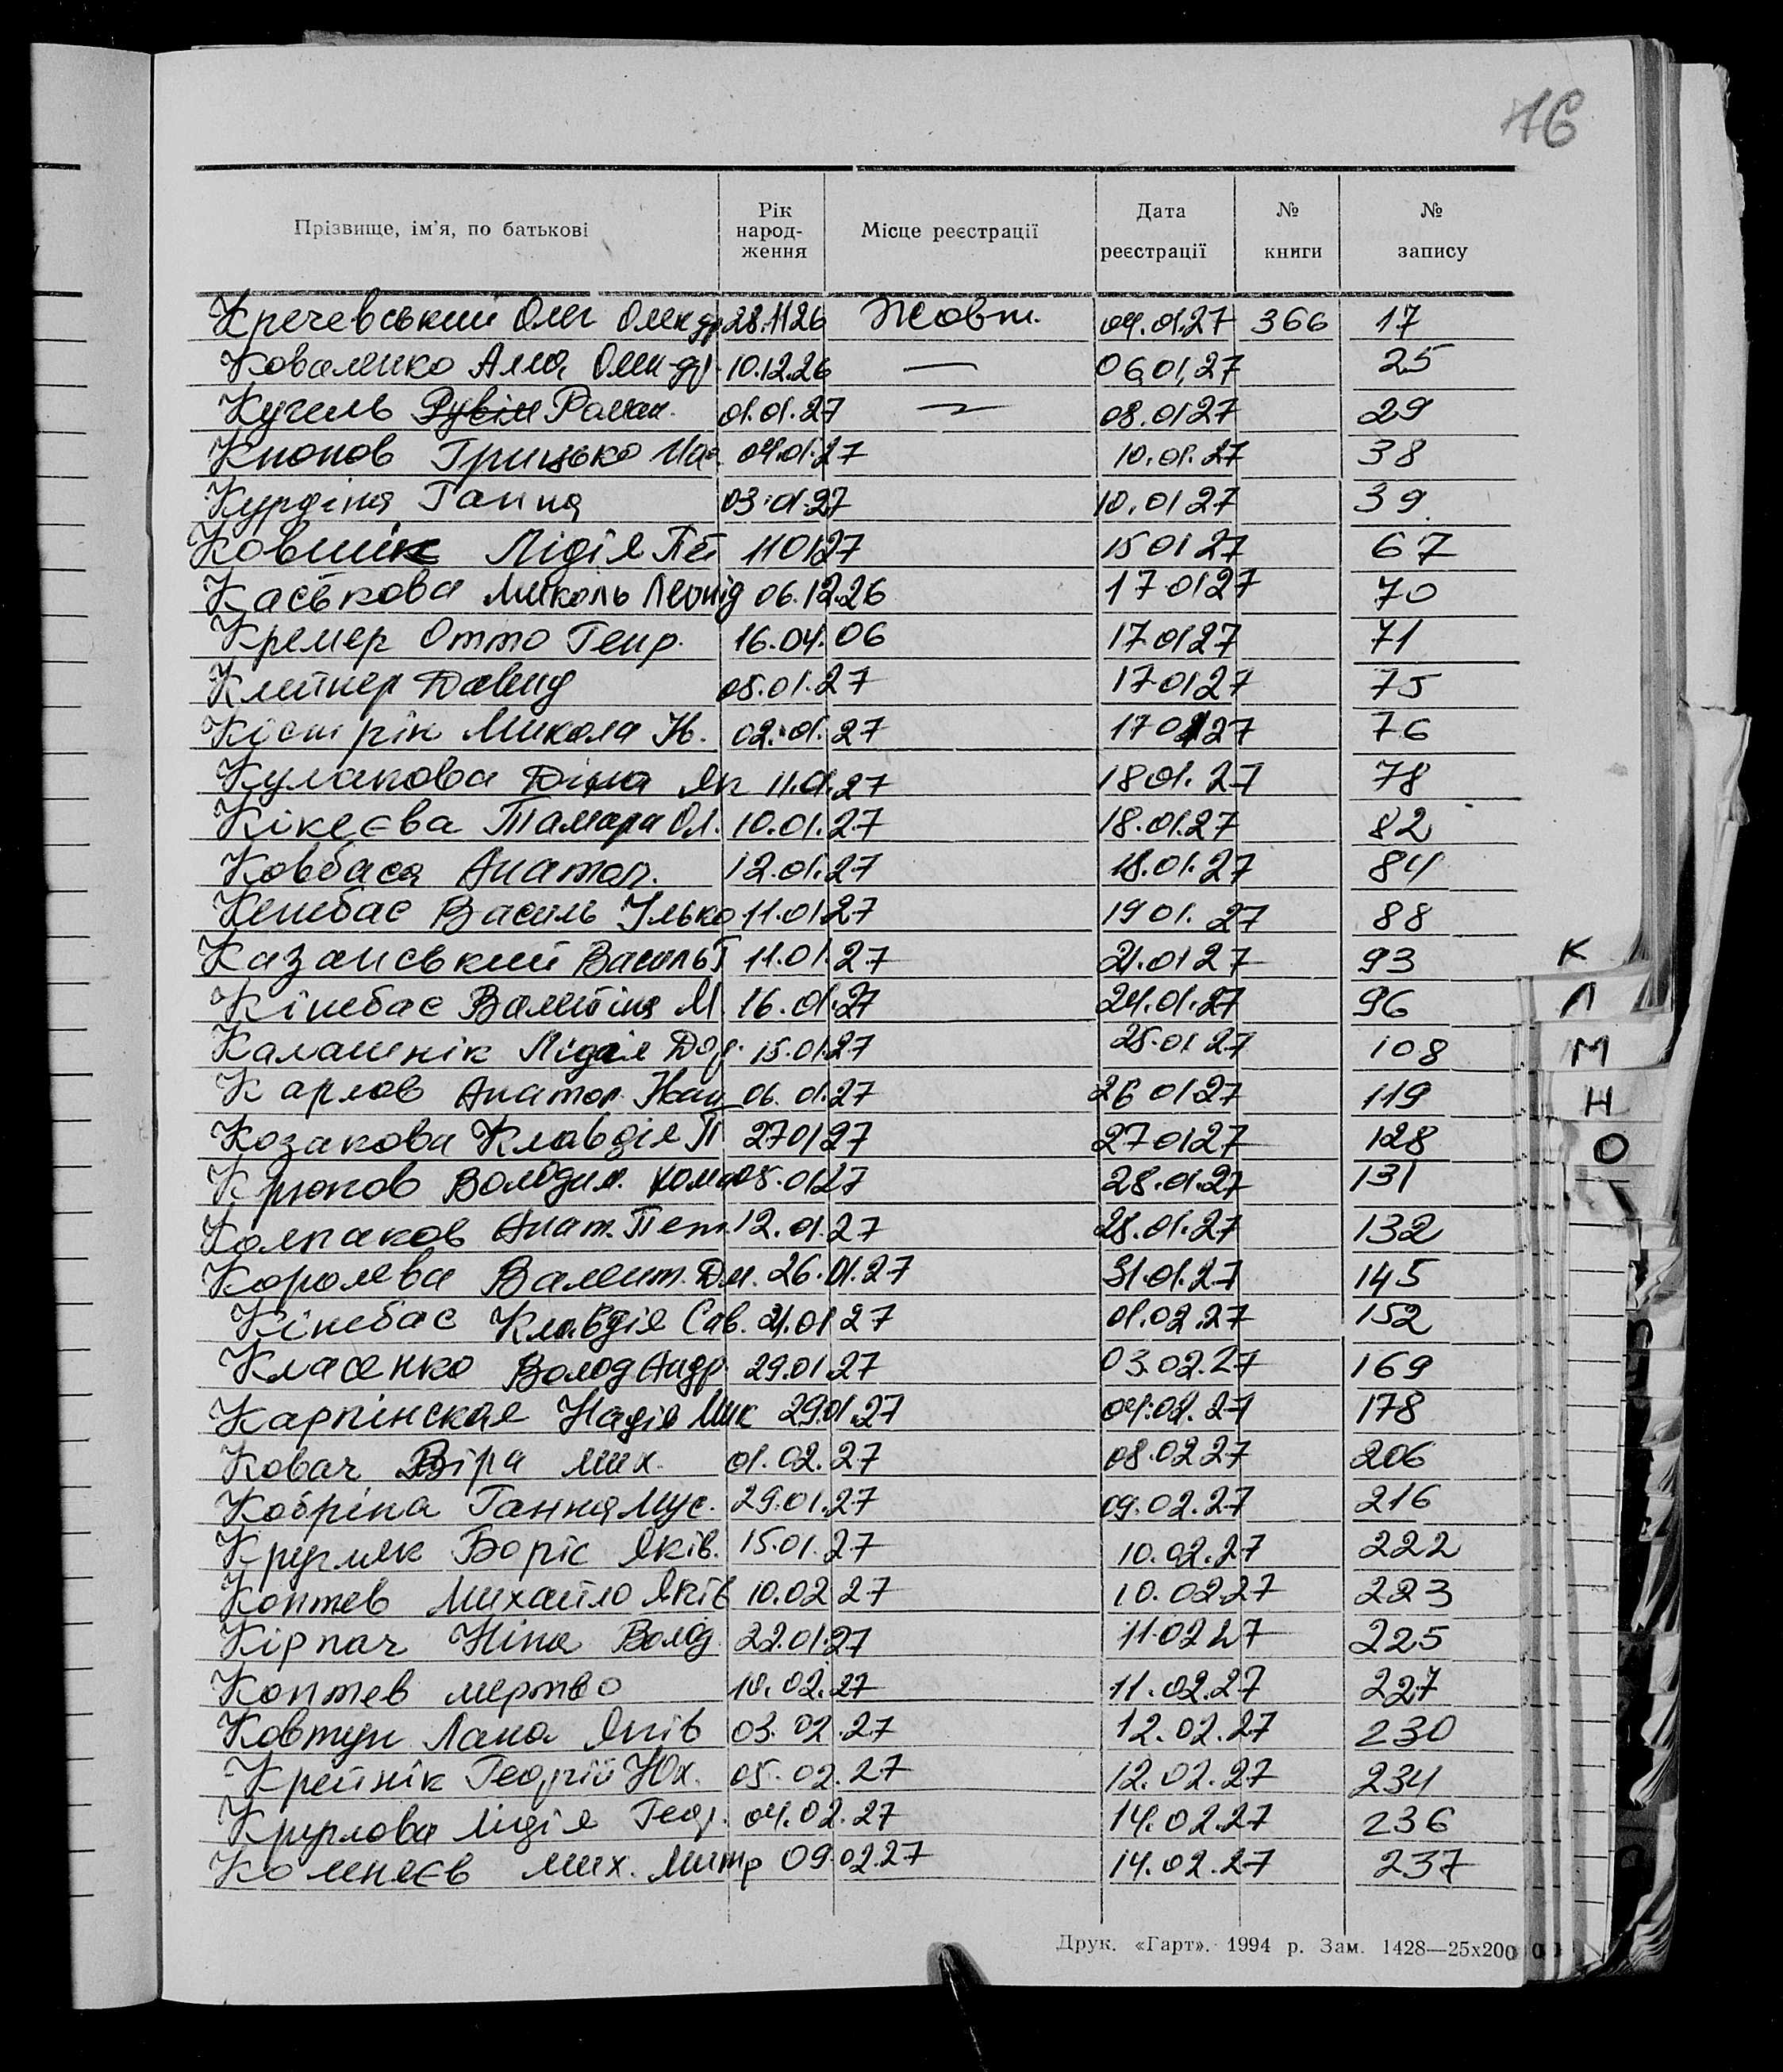 16
Прізвище, ім'я, по батькові Рік народ-ження Місце реєстрації Дата реєстрації № книги № запису
Кречевський Олег Олекдр 28.11 26 Жовт. 04.01.27 366 17
Коваленко Алла Олек-др 10.12.26 — 06.01.27 25
Кугель Рувім Роман. 01.01.27 — 08.01 27 29
Кнопов Грицько 04.01.27 10.01.27 38
Курдіна Ганна 03.01.27 10.01 27 39
Ковшік Лідія Пет 11 01 27 15 01 27 67
Каськова Миколь Леонід 06.12.26 17 01 27 70
Кремер Отто Генр. 16.04.06 17 01 27 71
Клейнер Давид 05.01.27 17 01 27 75
Кістрін Микола 02.01.27 17 01 27 76
Кулакова Діна Як 11.01.27 18 01. 27 78
Кікеєва Тамара Ол. 10.01.27 18.01.27 82
Ковбаса Анатол. 12.01.27 18.01.27 84
Кенебас Василь Ілько 11.01 27 19 01. 27 88
Казанський Василь Т 11.01.27 21.01 27 93
Кінебас Валентіна М. 16.01.27 24.01.27 96
Калашнік Лідія 15.01.27 25.01 27 108
Карлов Анатол. 06.01.27 26 01 27 119
Козакова Клавдія П 27 01 27 27 01 27 128
Крюков Володим. 05.01 27 28.01.27 131
Колпаков Анат. Пет. 12.01.27 28.01.27 132
Королева Валент. Дм. 26.01.27 31.01.27 145
Кінебас Клавдія Сав. 21.01 27 01.02.27 152
Класенко Волод Андр. 29.01.27 03.02.27 169
Карпінская Надія Мик 29.01.27 04.02.27 178
Ковач Віра Мих. 01.02.27 08.02 27 206
Кобріна Ганна Мус. 29.01.27 09.02.27 216
Кругляк Боріс Яків. 15.01.27 10.02.27 222
Коптев Михайло Яків 10.02 27 10.02.27 223
Кірпач Ніна Волод. 22.01.27 11.02 27 225
Коптев мертво 10.02.27 11.02.27 227
Ковтун Лана Яків 03.02.27 12.02.27 230
Крейнік Георгій Юх. 05.02.27 12.02.27 234
Круглова Лідія Геор. 04.02.27 14.02.27 236
Комнеєв Мих. Митр 09.02.27 14.02.27 237
Друк. «Гарт». 1994 р. Зам. 1428—25x200
К
Л
М
Н
О